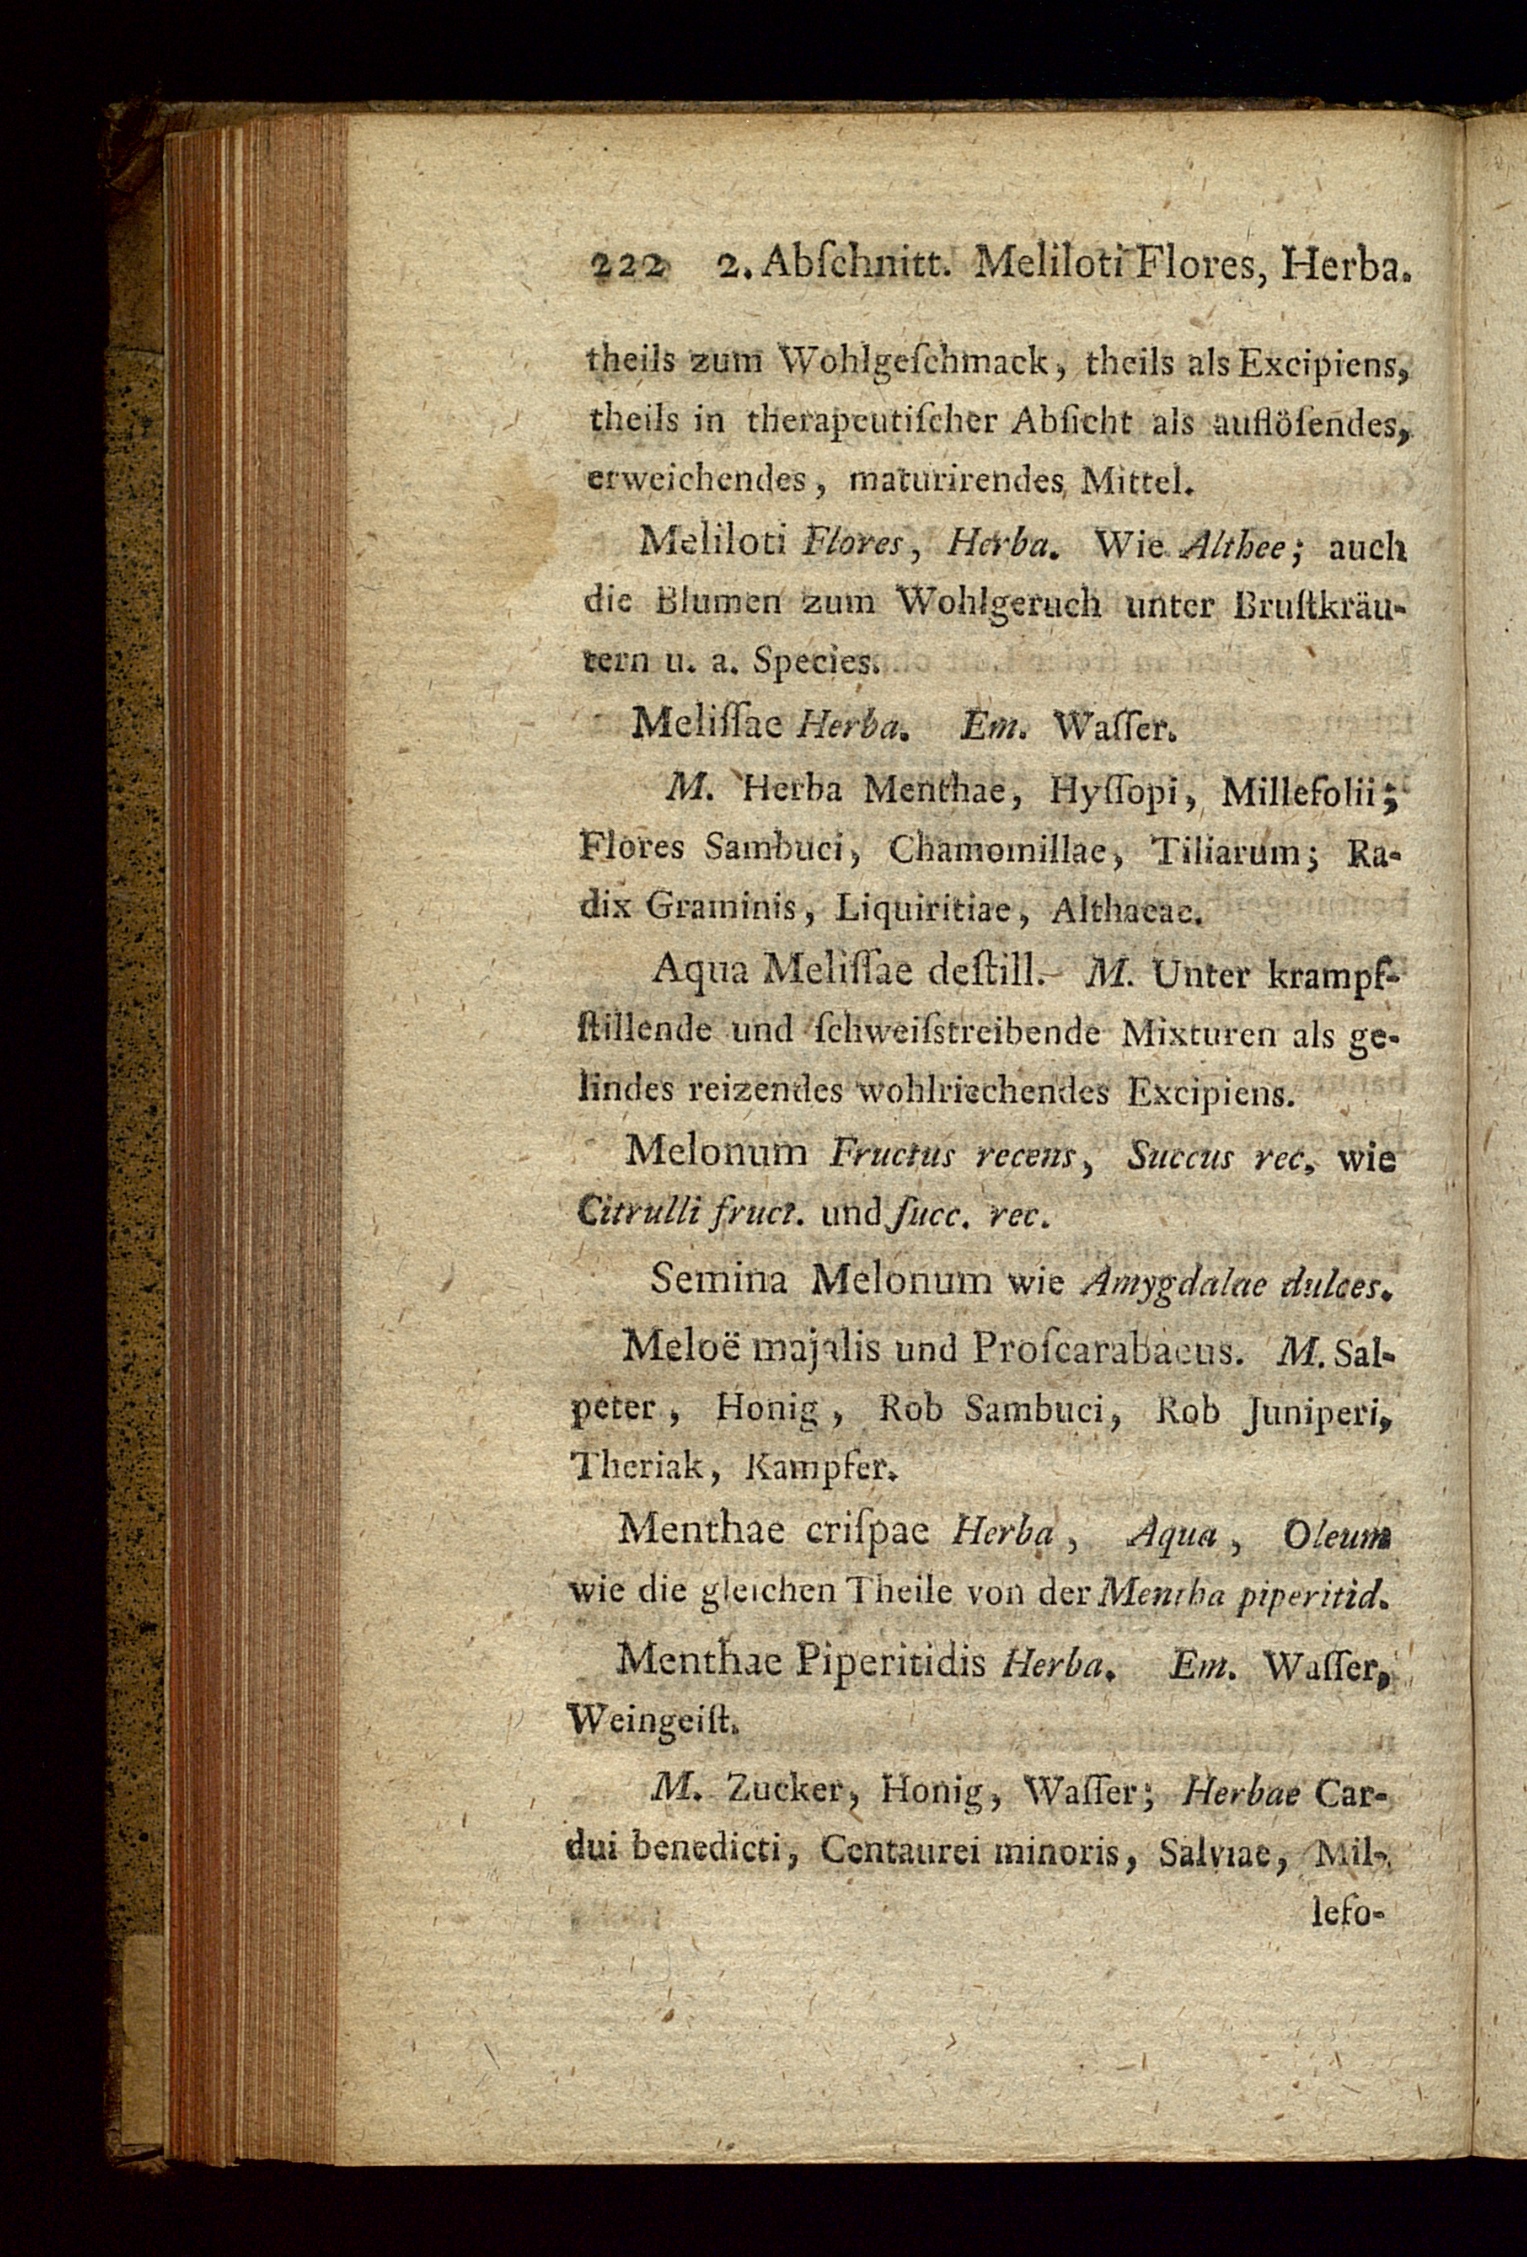 222 2. Abſchnitt. Meliloti Flores, Herba.
theils zum Wohlgeſchmack, theils als Excipiens,
theils in therapeutiſcher Abſicht als auflöſendes,
erweichendes, maturirendes Mittel.
Meliloti Flores, Herba. Wie Althee; auch
die Blumen zum Wohlgeruch unter Bruſtkräu-
tern u. a. Species.
Meliſſae Herba. Em. Waſſer.
M. Herba Menthae, Hyſſopi, Millefolii;
Flores Sambuci, Chamomillae, Tiliarum; Ra-
dix Graminis, Liquiritiae, Althaeae.
Aqua Meliſſae deſtill. M. Unter krampf-
ſtillende und ſchweiſstreibende Mixturen als ge-
lindes reizendes wohlriechendes Excipiens.
Melonum Fructus recens, Succus rec. wie
Citrulli fruct. und ſucc. rec.
Semina Melonum wie Amygdalae dulces.
Meloë majalis und Proſcarabaeus. M. Sal-
peter, Honig, Rob Sambuci, Rob Juniperi,
Theriak, Kampfer.
Menthae criſpae Herba, Aqua, Oleum
wie die gleichen Theile von der Mentha piperitid.
Menthae Piperitidis Herba. Em. Waſſer,
Weingeiſt.
M. Zucker, Honig, Waſſer; Herbae Car-
dui benedicti, Centaurei minoris, Salviae, Mil-
lefo-